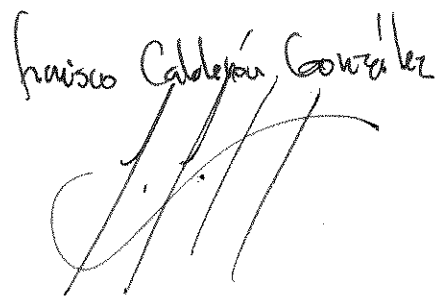 Francisco Calderón González